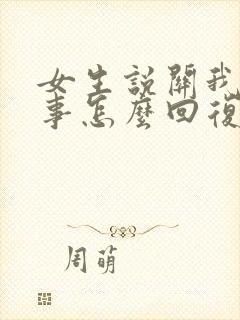 女生說關我
事怎麼回復
周萌